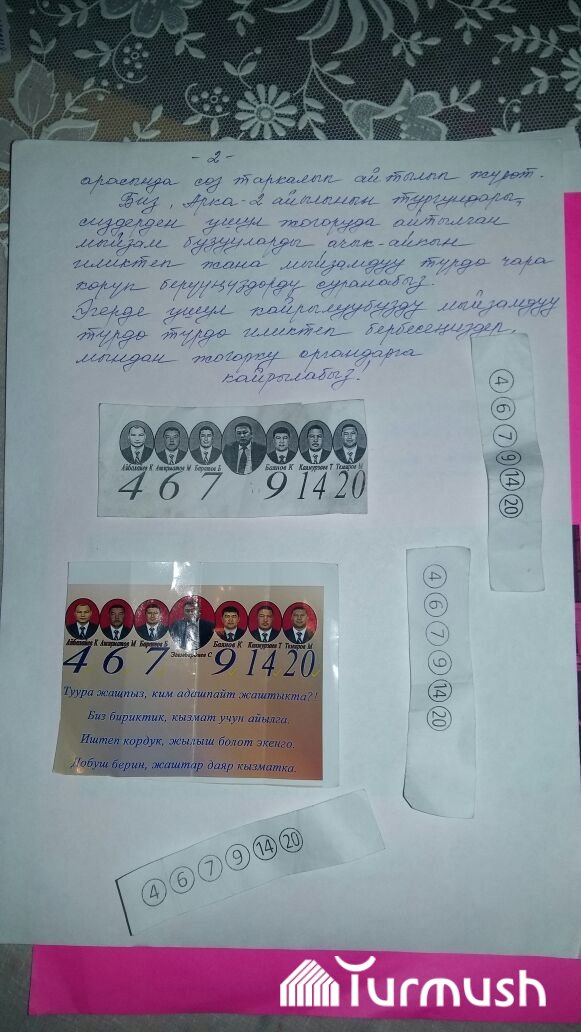 - 2 -
арасында сөз таркалып айтылып журөт.
Биз, Арка-2 айылынын тургундары,
сиздерден ушул жогоруда айтылган
мыйзам бузууларды ачык-айкын
иликтеп жана мыйзамдуу түрдө чара
көрүп берүүңүздөрдү суранабыз.
Эгерде ушул кайрылуубузду мыйзамдуу
түрдө түрдө иликтеп бербесеңиздер,
мындан жогорку органдарга
кайрылабыз.
Айбалаев К Ашырматов М Баратов Б Баянов К Камчурзаев Т Темиров М
4 6 7 9 14 20
4 6 7 9 14 20
Ашырматов М Баратов Б С Баянов К Темиров М
4 6 7 9 14 20
Туура жашпыз, ким адашпайт жаштыкта?!
Биз бириктик, кызмат учун айылга.
Иштеп кордук, жылыш болот экенго.
Добуш берин, жаштар даяр кызматка.
4 6 7 9 14 20
4 6 7 9 14 20
Turmush